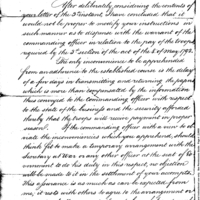 After deliberately considering the contents of
your letter of the 3d instant, I have concluded that it
would not be proper to modify your instructions in
such manner as to dispense with the warrant of the
commanding officer in relation to the pay of the troops
required by the 3d section of the act of the 8 of May 1792.
The only inconvenience to be apprehended
from an adherence to the established course is the delay
of a few days in transmitting and returning the papers
which is more than compensated by the information
thus conveyed to the Commanding officer with respect
to the state of the and the security afforded
thereby that the troops will receive payment in proper
season. If the commanding officer with a view to ob
viate the inconveniences which you apprehend, should
think fit to make a temporary arrangement with the
Secretary of War or any other officer at the seat of Go
vernment to do this duty in this respect, no objection
will be made to it in the settlement of your accounts.
This assurance is as much as can be expected from
me, it rests with others to agree to the arrangement